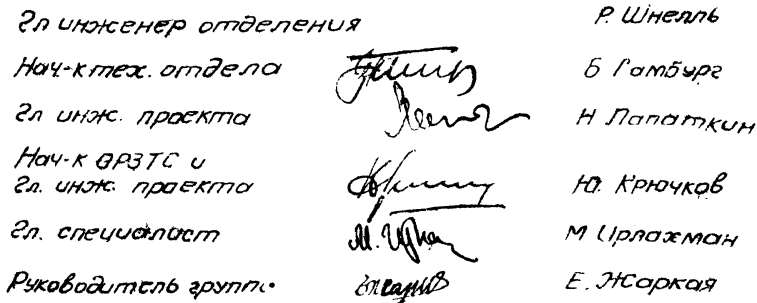 Гл инженер отделения Р. Шнелль
Нач-к тех. отдела Б Гамбург
Гл инж. проекта Н Лапаткин
Нач-к ОРЗТС и
Гл. инж. проекта Ю. Крючков
Гл. специалист М Ирлахман
Руководитель группы Е. Жаркая